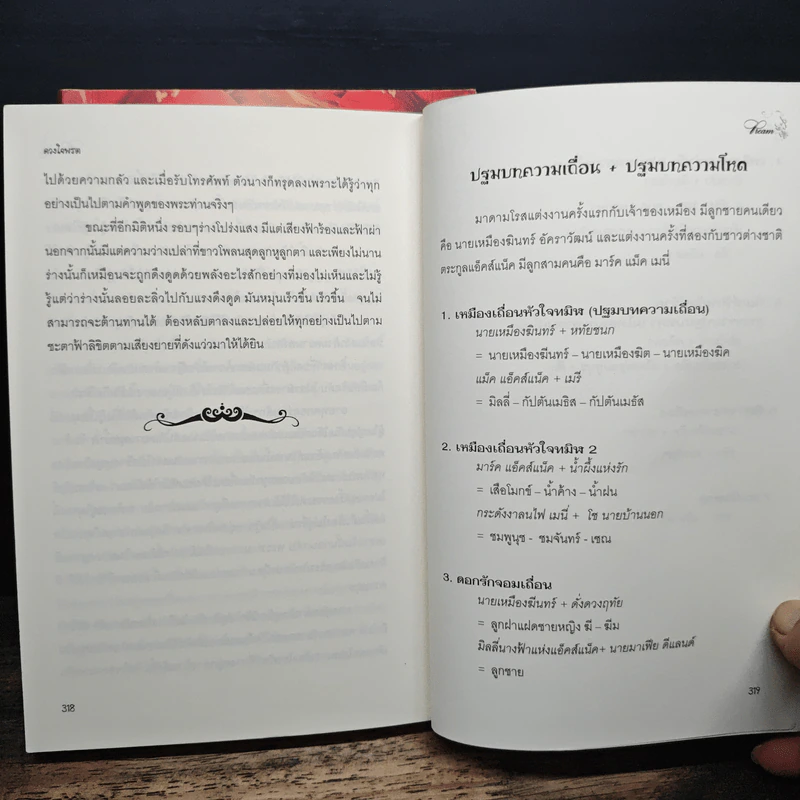 ดวงใจพรต
ไปด้วยความกลัว และเมื่อรับโทรศัพท์ ตัวนางก็ทรุดลงเพราะได้รู้ว่าทุก
อย่างเป็นไปตามคำพูดของพระท่านจริงๆ
ขณะที่อีกมิติหนึ่ง รอบๆร่างโปร่งแสง มีแต่เสียงฟ้าร้องและฟ้าผ่า
นอกจากนั้นมีแต่ความว่างเปล่าที่ขาวโพลนสุดลูกหูลูกตา และเพียงไม่นาน
ร่างนั้นก็เหมือนจะถูกดึงดูดด้วยพลังอะไรสักอย่างที่มองไม่เห็นและไม่รู้
รู้แต่ว่าร่างนั้นลอยละลิ่วไปกับแรงดึงดูด มันหมุนเร็วขึ้น เร็วขึ้น จนไม่
สามารถจะต้านทานได้ ต้องหลับตาลงและปล่อยให้ทุกอย่างเป็นไปตาม
ชะตาฟ้าลิขิตตามเสียงยายที่ดังแว่วมาให้ได้ยิน
318
Dream
ปฐมบทความเถื่อน + ปฐมบทความโหด
มาดามโรสแต่งงานครั้งแรกกับเจ้าของเหมือง มีลูกชายคนเดียว
คือ นายเหมืองฆินทร์ อัคราวัฒน์ และแต่งงานครั้งที่สองกับชาวต่างชาติ
ตระกูลแอ็คส์แน็ค มีลูกสามคนคือ มาร์ค แม็ค เมนี่
1. เหมืองเถื่อนหัวใจทมิฬ (ปฐมบทความเถื่อน)
นายเหมืองฆินทร์ + หทัยชนก
= นายเหมืองฆีนทร์ – นายเหมืองฆิต – นายเหมืองฆิค
แม็ค แอ็คส์แน็ค + เมรี
= มิลลี่ – กัปตันเมธิส – กัปตันเมธัส
2. เหมืองเถื่อนหัวใจทมิฬ 2
มาร์ค แอ็คส์แน็ค + น้ำผึ้งแห่งรัก
= เสือโมกข์ – น้ำค้าง – น้ำฝน
กระดังงาลนไฟ เมนี่ + โช นายบ้านนอก
= ชมพูนุช - ชมจันทร์ - เชณ
3. ดอกรักจอมเถื่อน
นายเหมืองฆีนทร์ + ดั่งดวงฤทัย
= ลูกฝาแฝดชายหญิง ฆี – ฆีม
มิลลี่นางฟ้าแห่งแอ็คส์แน็ค+ นายมาเฟีย ดีแลนด์
= ลูกชาย
319